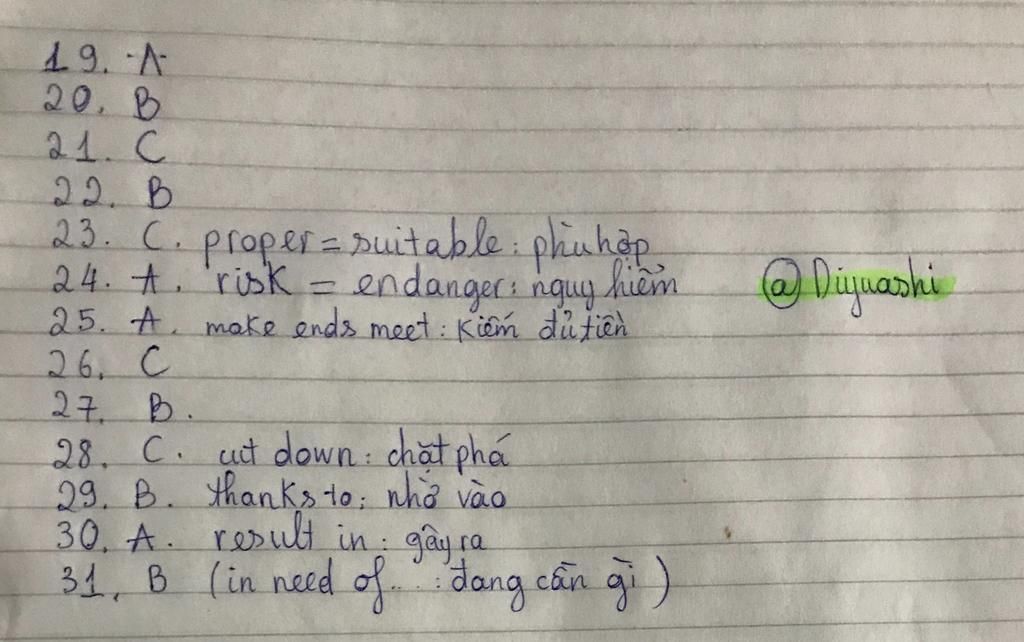 19. A
20. B
21. C
22. B
23. C. proper = suitable: phù hợp
24. A. risk = endanger: nguy hiểm @Diyuashi
25. A. make ends meet: Kiếm đủ tiền
26. C
27. B.
28. C. cut down: chặt phá
29. B. thanks to: nhờ vào
30. A. result in: gây ra
31. B (in need of...: đang cần gì)